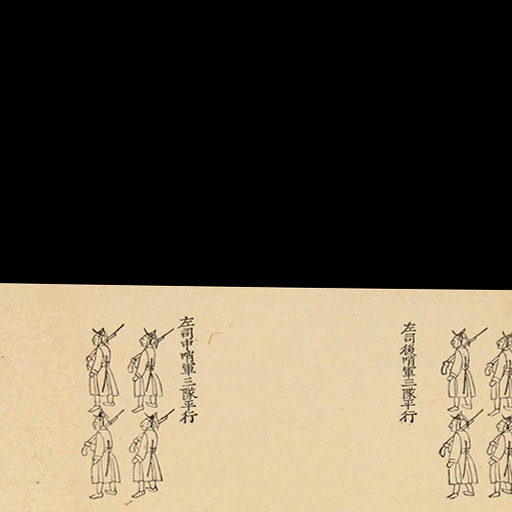 左司後哨軍三隊平行
左司中哨軍三隊平行